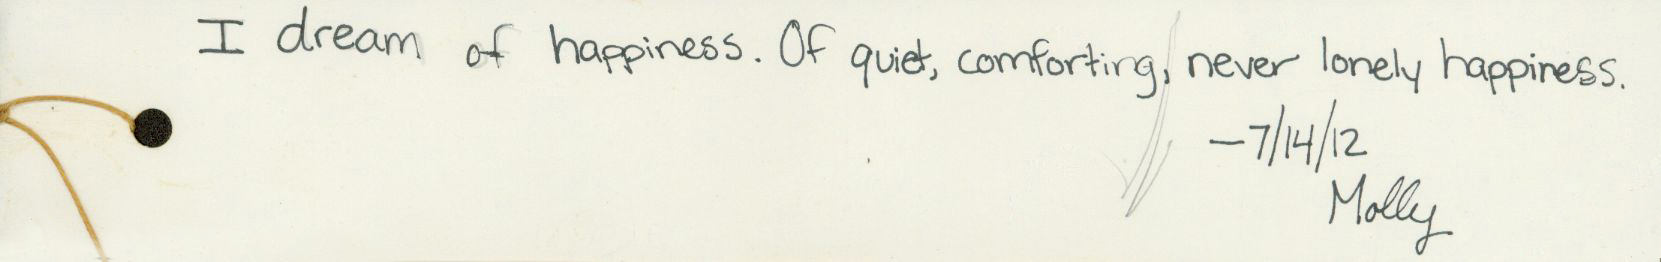 I dream of happiness. Of quiet, comforting, never lonely happiness.
—7/14/12
Molly